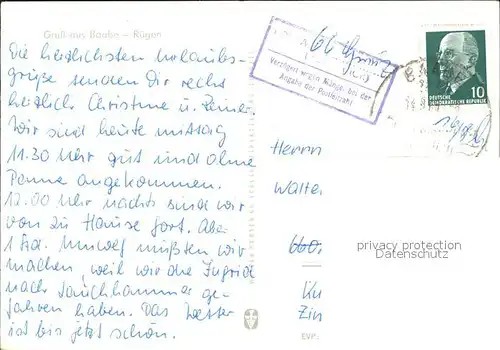 Gruß aus Baabe – Rügen
Die herzlichsten Urlaubs-
grüße senden Dir recht
herzlich Christine u. Reiner.
Wir sind heute mittag
11.30 Uhr gut und ohne
Panne angekommen.
12.00 Uhr nachts sind wir
von zu Hause fort. Aber
1 Std. Umweg mußten wir
machen, weil wir die Ingrid
nach Lauchhammer ge-
fahren haben. Das Wetter
ist bis jetzt schön.
Verzögert wegen Mängel bei der
Angabe der Postleitzahl
10
DEUTSCHE
DEMOKRATISCHE REPUBLIK
Herrn
Walter
privacy protection
Datenschutz